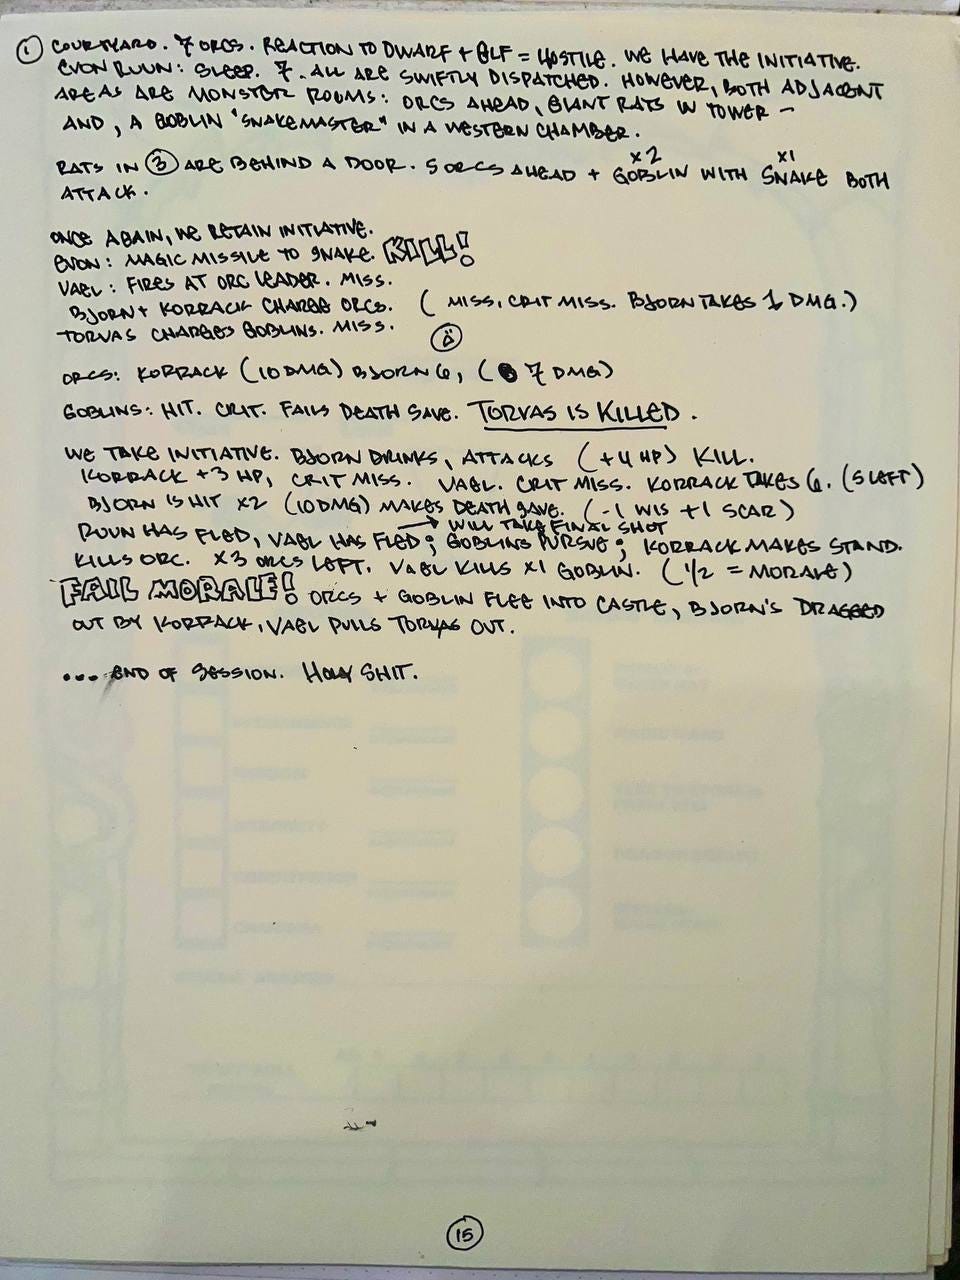 ① COURTYARD. 7 ORCS. REACTION TO DWARF + ELF = HOSTILE. WE HAVE THE INITIATIVE.
EVON RUUN: SLEEP. 7. ALL ARE SWIFTLY DISPATCHED. HOWEVER, BOTH ADJACENT
AREAS ARE MONSTER ROOMS: ORCS AHEAD, GIANT RATS IN TOWER –
AND, A GOBLIN "SNAKEMASTER" IN A WESTERN CHAMBER.
RATS IN ③ ARE BEHIND A DOOR. 5 ORCS AHEAD + GOBLIN x2 WITH SNAKE x1 BOTH
ATTACK.
ONCE AGAIN, WE RETAIN INITIATIVE.
EVON: MAGIC MISSILE TO SNAKE. KILL!
VAEL: FIRES AT ORC LEADER. MISS.
BJORN + KORRACK CHARGE ORCS. (MISS, CRIT MISS. BJORN TAKES 1 DMG.)
TORVAS CHARGES GOBLINS. MISS.
ORCS: KORRACK (10 DMG) BJORN 6, (7 DMG)
GOBLINS: HIT. CRIT. FAILS DEATH SAVE. TORVAS IS KILLED.
WE TAKE INITIATIVE. BJORN DRINKS, ATTACKS (+4 HP) KILL.
KORRACK +3 HP, CRIT MISS. VAEL. CRIT MISS. KORRACK TAKES 6. (5 LEFT)
BJORN IS HIT x2 (10 DMG) MAKES DEATH SAVE. (-1 WIS +1 SCAR)
→ WILL TAKE FINAL SHOT
RUUN HAS FLED, VAEL HAS FLED; GOBLINS PURSUE; KORRACK MAKES STAND.
KILLS ORC. x3 ORCS LEFT. VAEL KILLS x1 GOBLIN. (1/2 = MORALE)
FAIL MORALE! ORCS + GOBLIN FLEE INTO CASTLE, BJORN'S DRAGGED
OUT BY KORRACK, VAEL PULLS TORVAS OUT.
... END OF SESSION. HOLY SHIT.
15